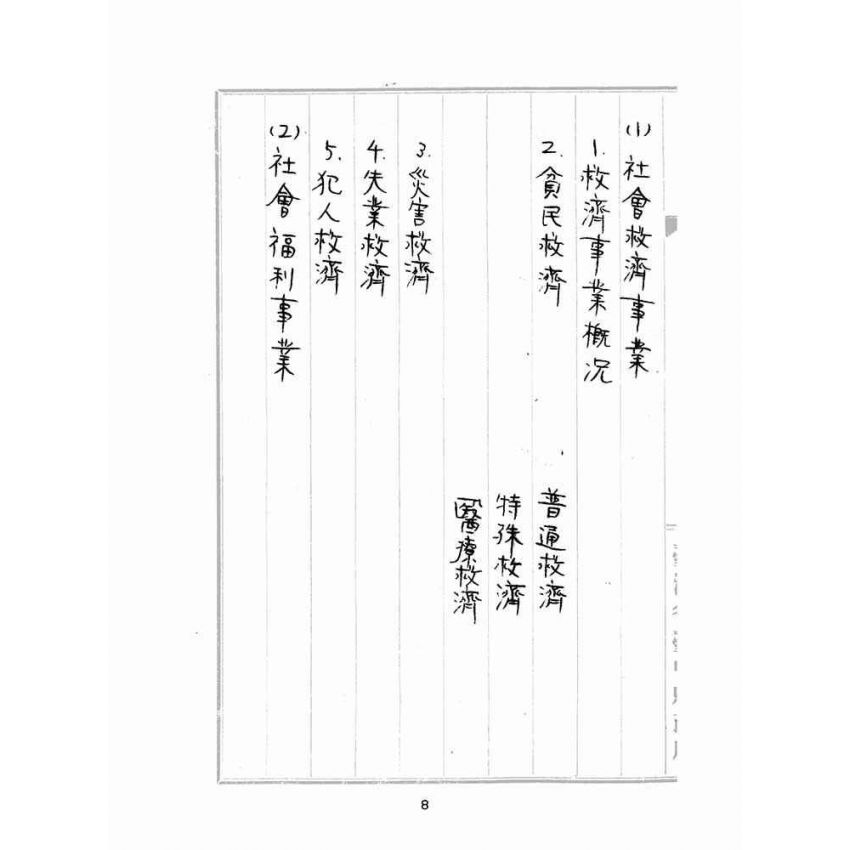 (1) 社會救濟事業
1. 救濟事業概況
2. 貧民救濟 普通救濟
特殊救濟
醫療救濟
3. 災害救濟
4. 失業救濟
5. 犯人救濟
(2) 社會福利事業
8